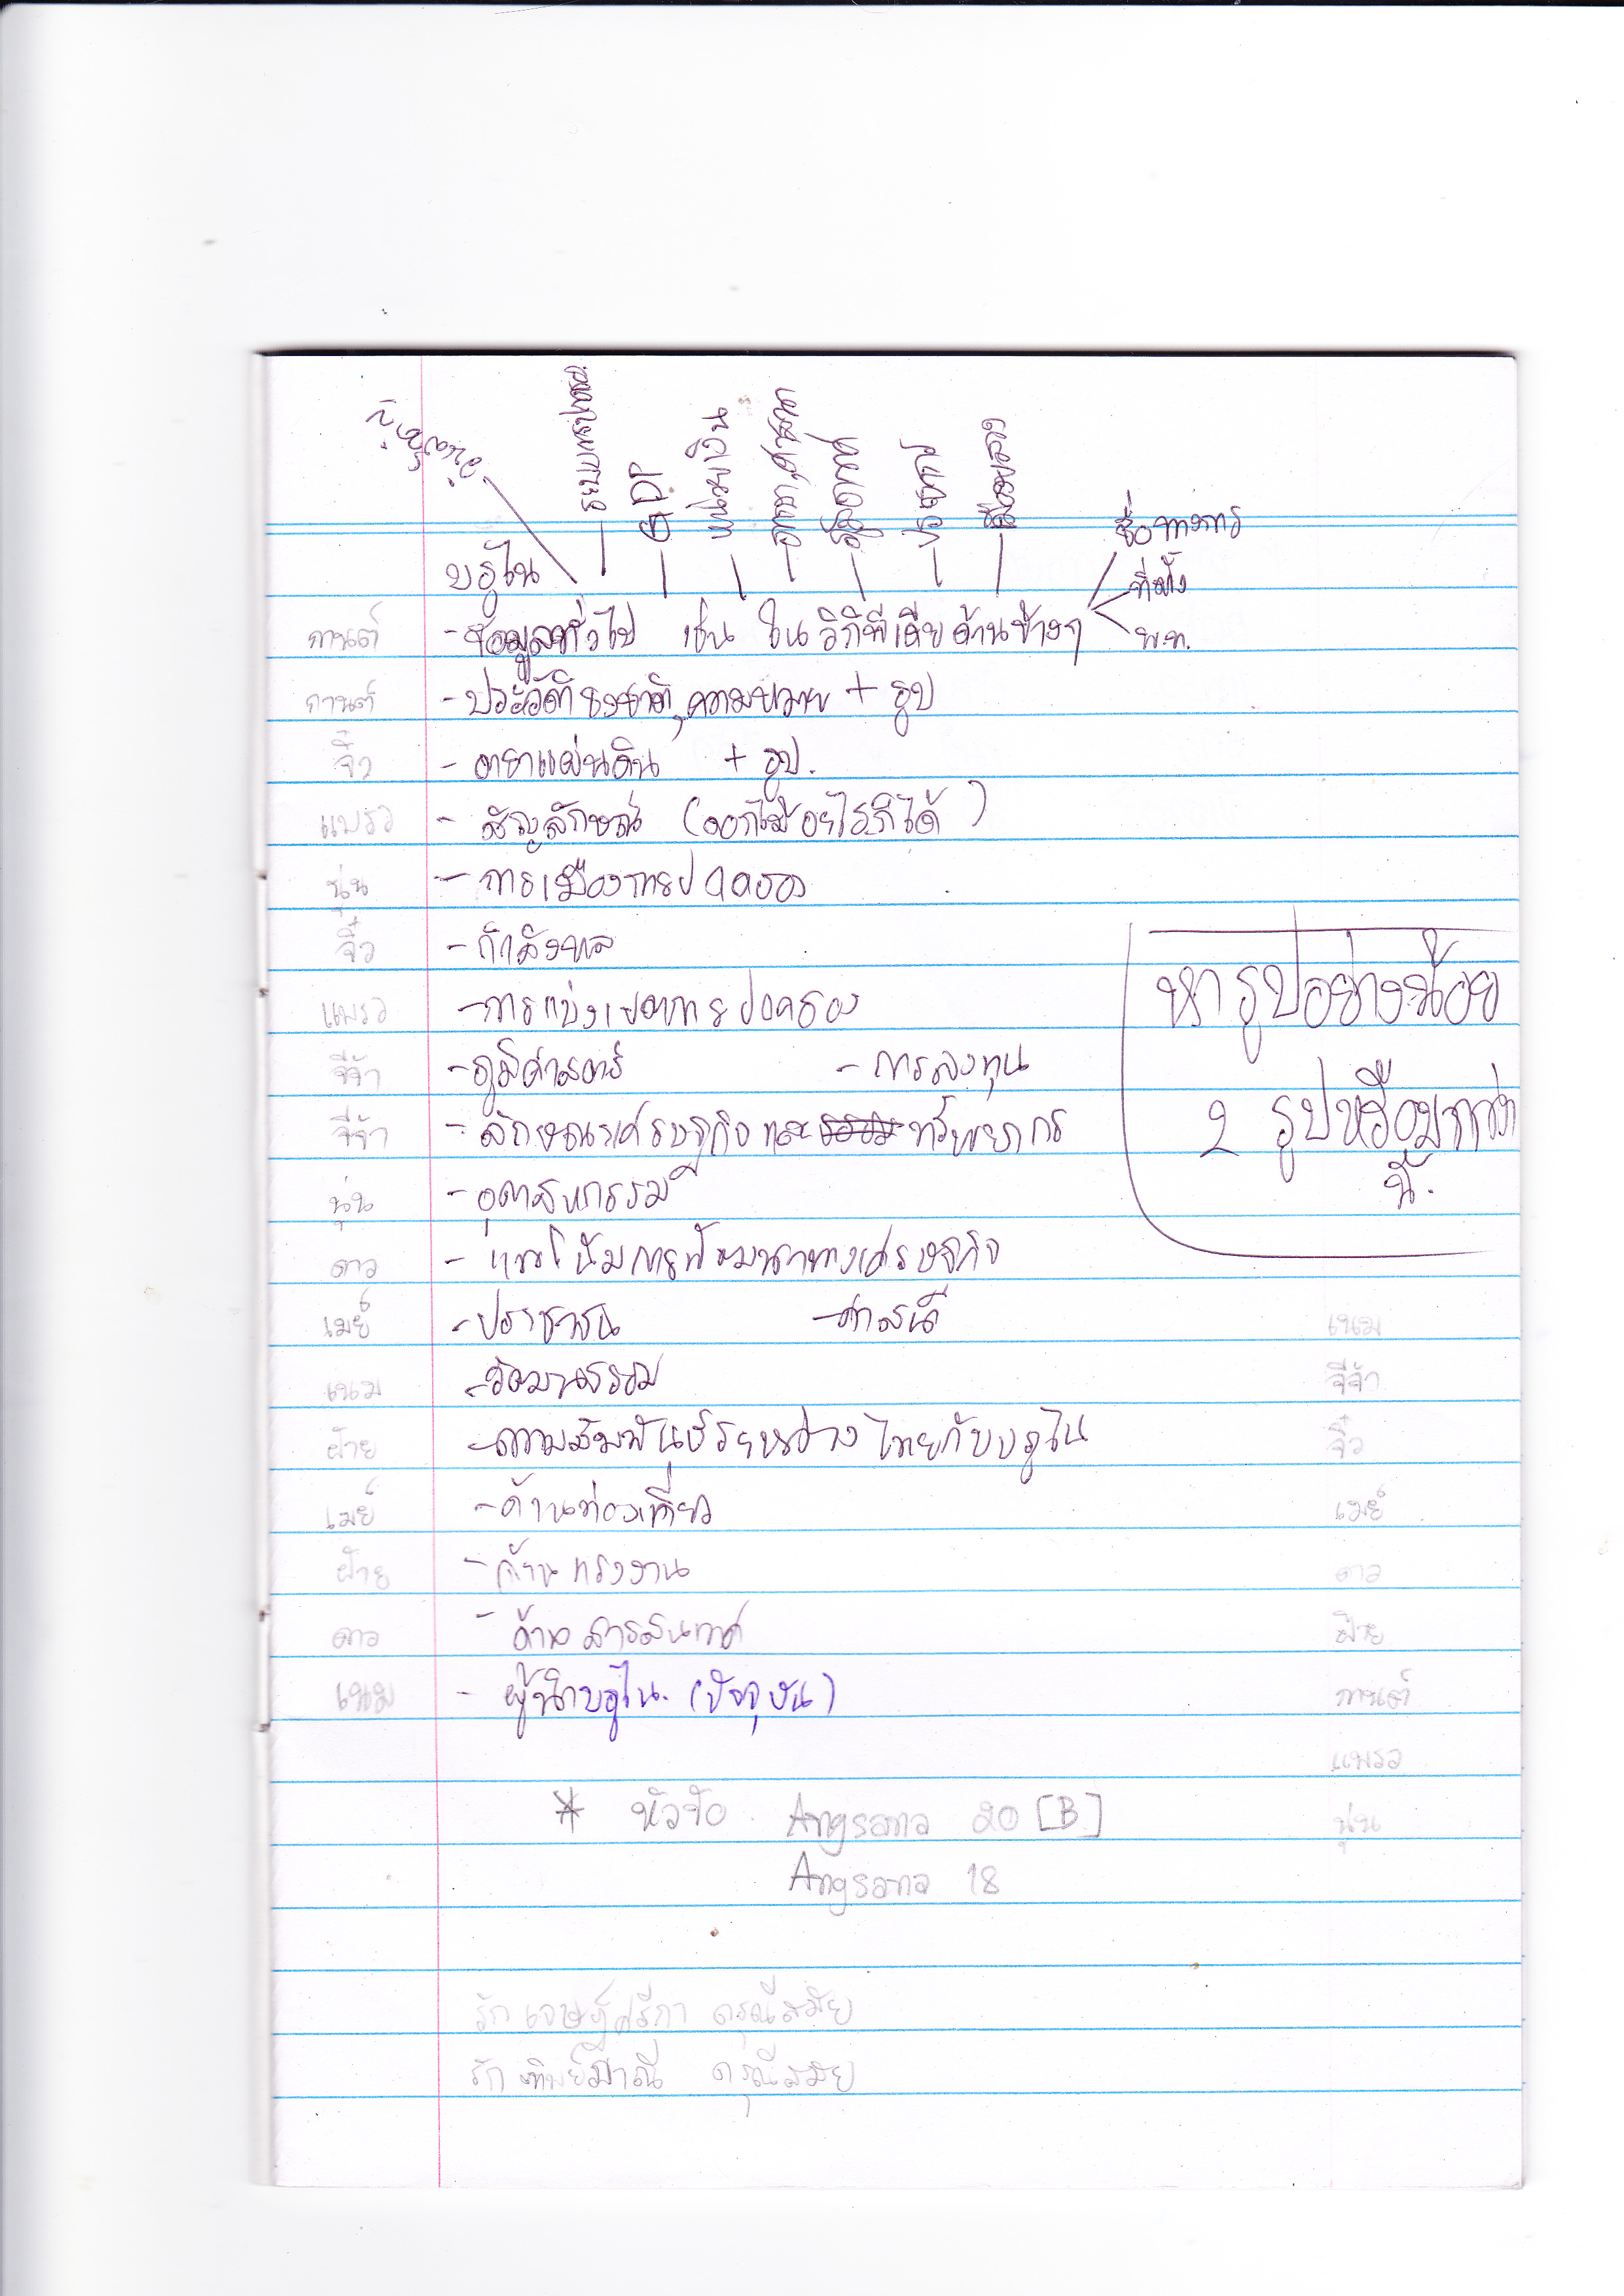 ระบบการปกครอง
GDP
หน่วยเงิน
ศาสนา
ประชากร
ชื่อทางการ
บรูไน
ที่ตั้ง
กานต์ - ข้อมูลทั่วไป เช่น ในวิกิพีเดียด้านข้างๆ พ.ท.
กานต์ - ประวัติธงชาติ, ความหมาย + รูป
จิ๋ว - ตราแผ่นดิน + รูป.
แพรว - สัญลักษณ์ (ดอกไม้อะไรก็ได้)
นุ่น - การเมืองการปกครอง
จิ๋ว - กำลังพล
แพรว - การแบ่งเขตการปกครอง
หารูปอย่างน้อย
2 รูปหรือมากกว่า
นี้.
จีจ้า - ภูมิศาสตร์ - การลงทุน
จีจ้า - ลักษณะเศรษฐกิจและ ทรัพยากร
นุ่น - อุตสาหกรรม
ดาว - แนวโน้มการพัฒนาทางเศรษฐกิจ
เมย์ - ประชาชน - ศาสนา เนม
เนม - วัฒนธรรม จีจ้า
ฝ้าย - ความสัมพันธ์ระหว่างไทยกับบรูไน จิ๋ว
เมย์ - ด้านท่องเที่ยว เมย์
ฝ้าย - ด้านแรงงาน ดาว
ดาว - ด้านสารสนเทศ ฝ้าย
เนม - ผู้นำบรูไน. (ปัจจุบัน) กานต์
แพรว
* หัวข้อ Angsana 20 [B] นุ่น
Angsana 18
รัก ดรุณีสมัย
รัก ดรุณีสมัย